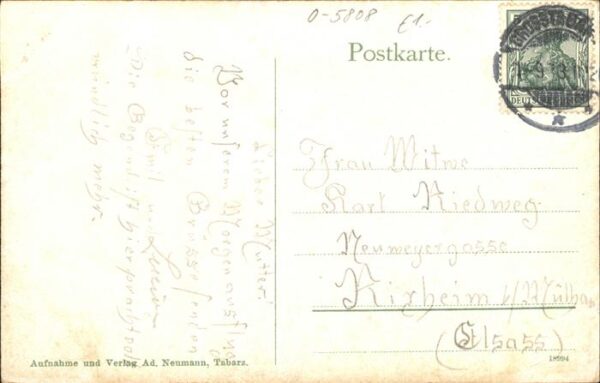 0-5808 £1.-
Postkarte.
DEUTSCHES REICH
Frau Witwe
Karl Riedweg
Neumeyergasse
Rixheim b/Mülh.
(Elsass)
Liebe Mutter!
Von unserem Morgenausflug
die besten Grüsse senden
Emil und
Die Gegend ist hier prachtvoll
mündlich mehr.
Aufnahme und Verlag Ad. Neumann, Tabarz.